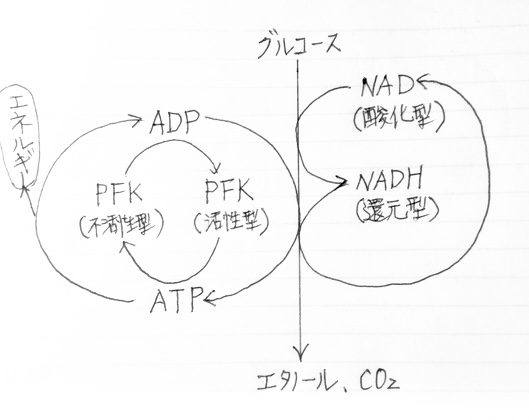 グルコース
エネルギー
NAD
(酸化型)
ADP
PFK
(不活性型)
PFK
(活性型)
NADH
(還元型)
ATP
エタノール、CO₂